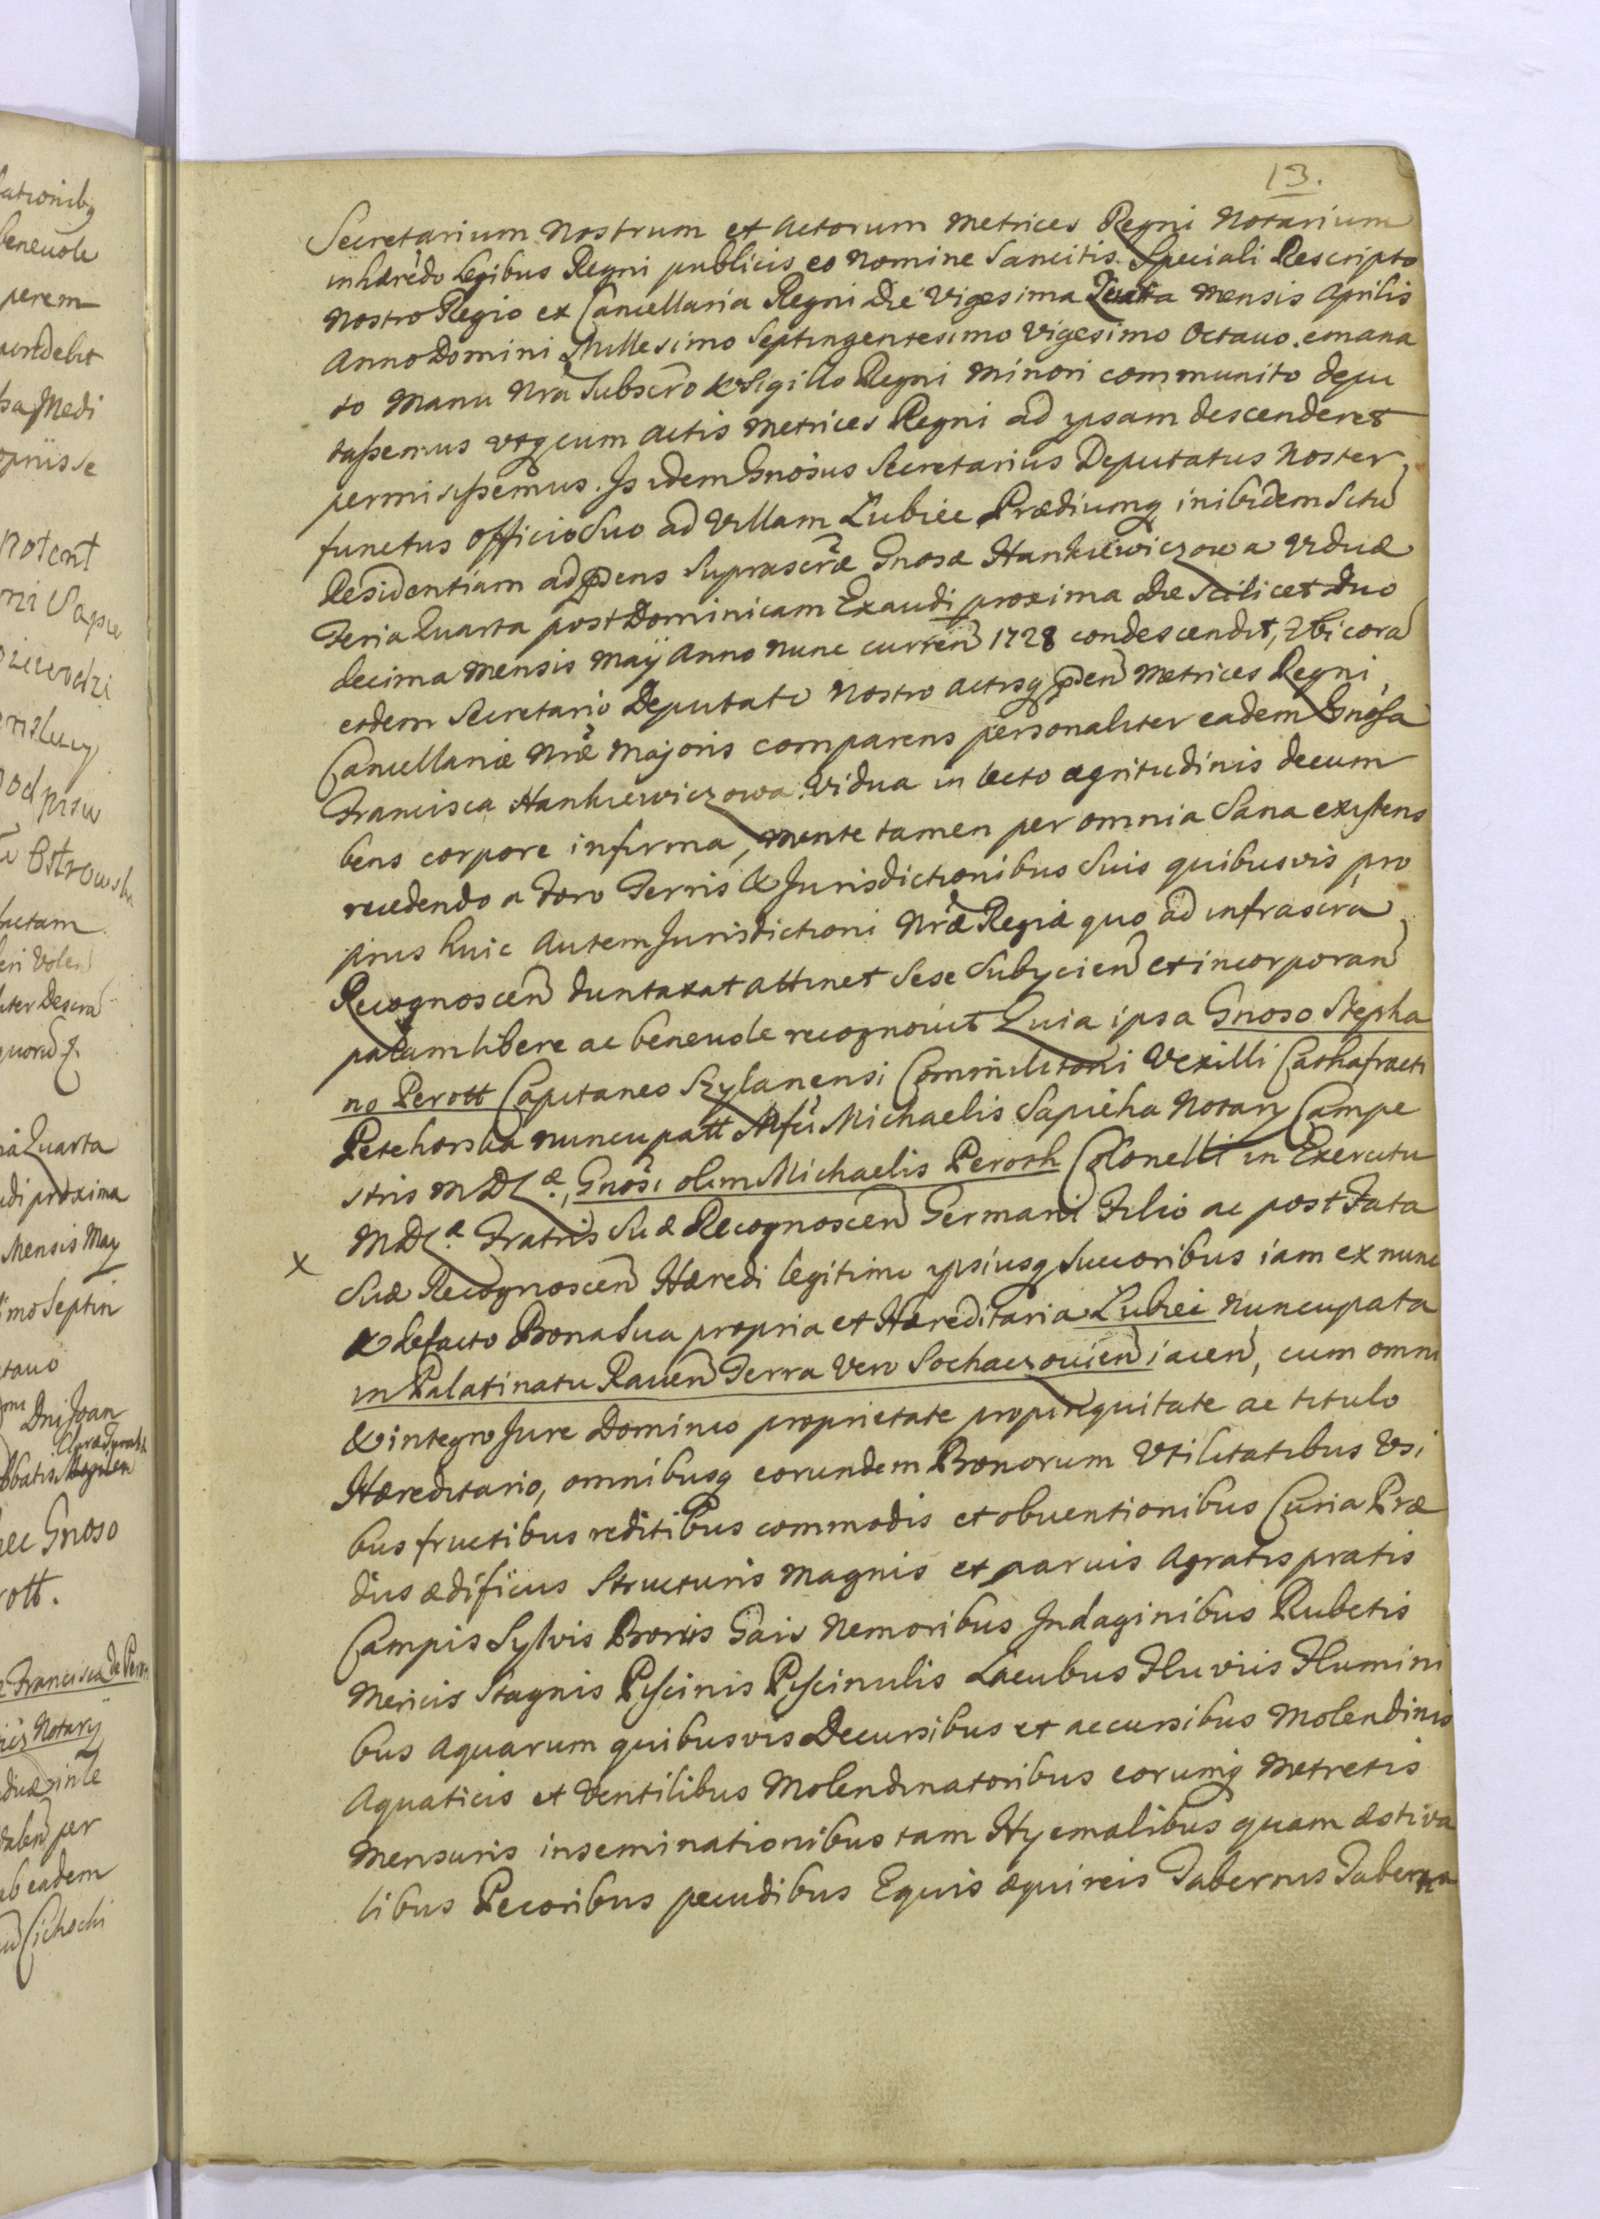 13.
Secretarium Nostrum et Actorum Metrices Regni Notarium
inhærẽdo Legibus Regni publicis eo Nomine Sancitis. Speciali Rescripto
Nostro Regio ex Cancellaria Regni Die Vigesima Mensis Aprilis
Anno Domini Millesimo Septingentesimo Vigesimo Octauo emana
to Manu Nrã Subscrõ & Sigillo Regni Minori communito depu
tassemus utq cum Actis Metrices Regni ad ipsam descenderet
permisissemus. Is idem Gnosus Secretarius Deputatus Noster,
functus Officio Suo ad Villam Lubiec Prædiumq inibidem Situ
Residentiam ad pñs Suprascrœ Gnosæ Hankiewiczowa Viduæ
Feria Quarta post Dominicam Exaudi proxima Die Scilicet Duo
decima Mensis Maÿ Anno Nunc curreñ 1728 condescendit, Ubi corã
eodem Secretario Deputato Nostro Actisq pdeñ Metrices Regni,
Cancellariæ Nræ Majoris comparens personaliter eadem Gnosa
Francisca Hankiewiczowa Vidua in lecto ægritudinis decum
bens corpore infirma, mente tamen per omnia Sana existens
recedendo a Foro Terris & Jurisdictionibus Suis quibusvis pro
prius huic Autem Jurisdictioni Nræ Regiæ quo ad infrascrã
Recognosceñ duntaxat attinet Sese Subycieñ et incorporañ
palam libere ac beneuole recognouit Quia ipsa Gnoso Stepha
no Perott Capitaneo Szylanensi Commilitoni Vexilli Cathafracti
Petehorska nuncupatt Mfci Michaelis Sapieha Notary Campe
stris MDLæ, Gnosi olim Michaelis Peroth Colonelli in Exercitu
MDLæ Fratris Suæ Recognosceñ Germani Filio ac post Fata
x
Suæ Recognosceñ Hæredi legitimo ipsiusq Succoribus iam ex nunc
& defacto Bona Sua propria et Hæreditaria Lubiec Nuncupata
in Palatinatu Raueñ Terra Vero Sochaczouieñ iaceñ, cum omni
& integro Jure Dominio proprietate propinquitate ac titulo
Hæreditario, omnibusq eorundem Bonorum Vtilitatibus Vsi
bus fructibus reditibus commodis et obuentionibus Curia Præ
dius ædificus Structuris Magnis et paruis Agratis pratis
Campis Sylvis Borris Gais Nemoribus Indaginibus Rubetis
Mericis Stagnis Piscinis Piscinulis Lacubus Fluviis Flumini
bus Aquarum quibusvis Decursibus et accursibus Molendinis
Aquaticis et Ventilibus Molendinatoribus eorumq Metretis
Mensuris inseminationibus tam Hyemalibus quam æstiva
libus Pecoribus pecudibus Equis æquireis Tabernis Taberna